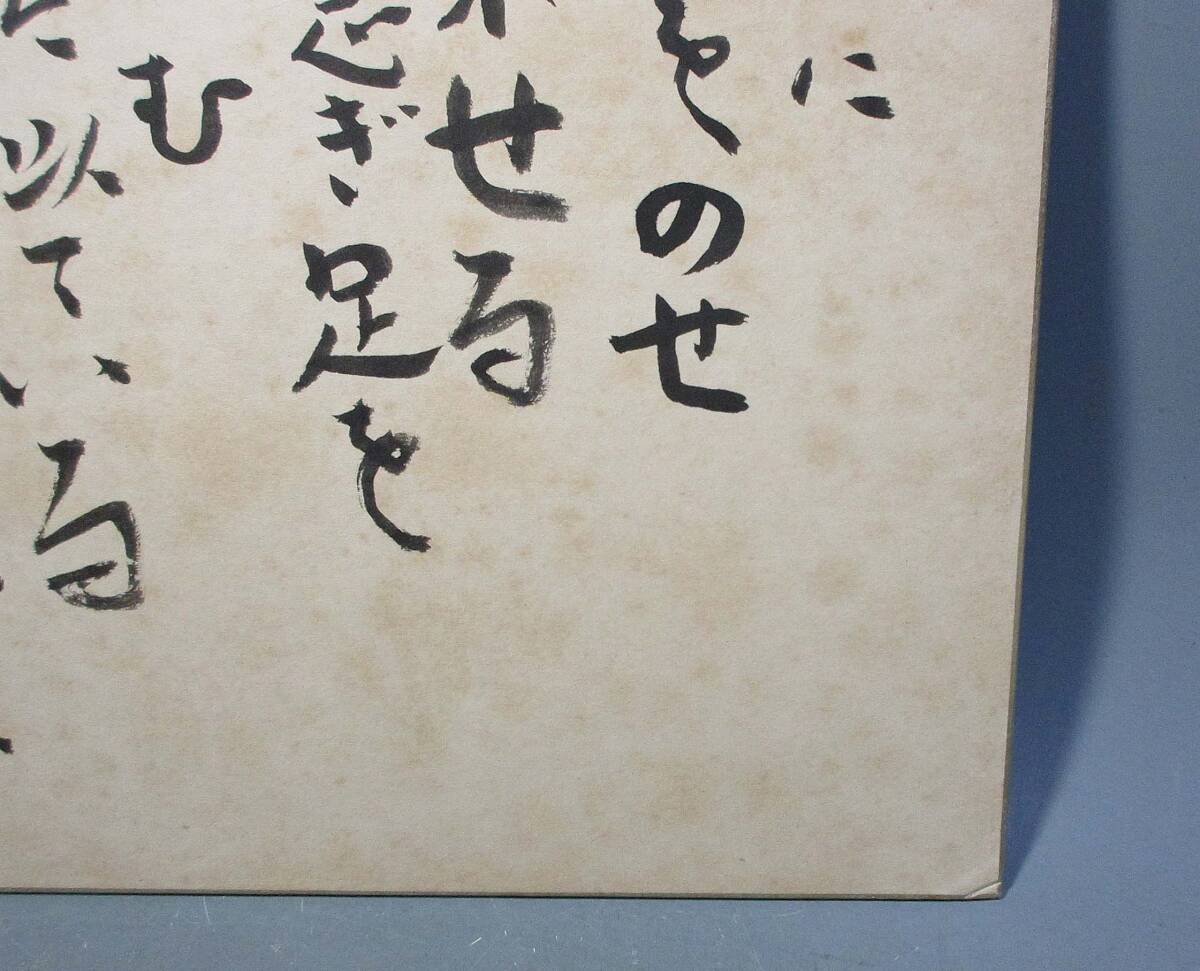 に
をのせ
せる
急ぎ足を
む
似ている